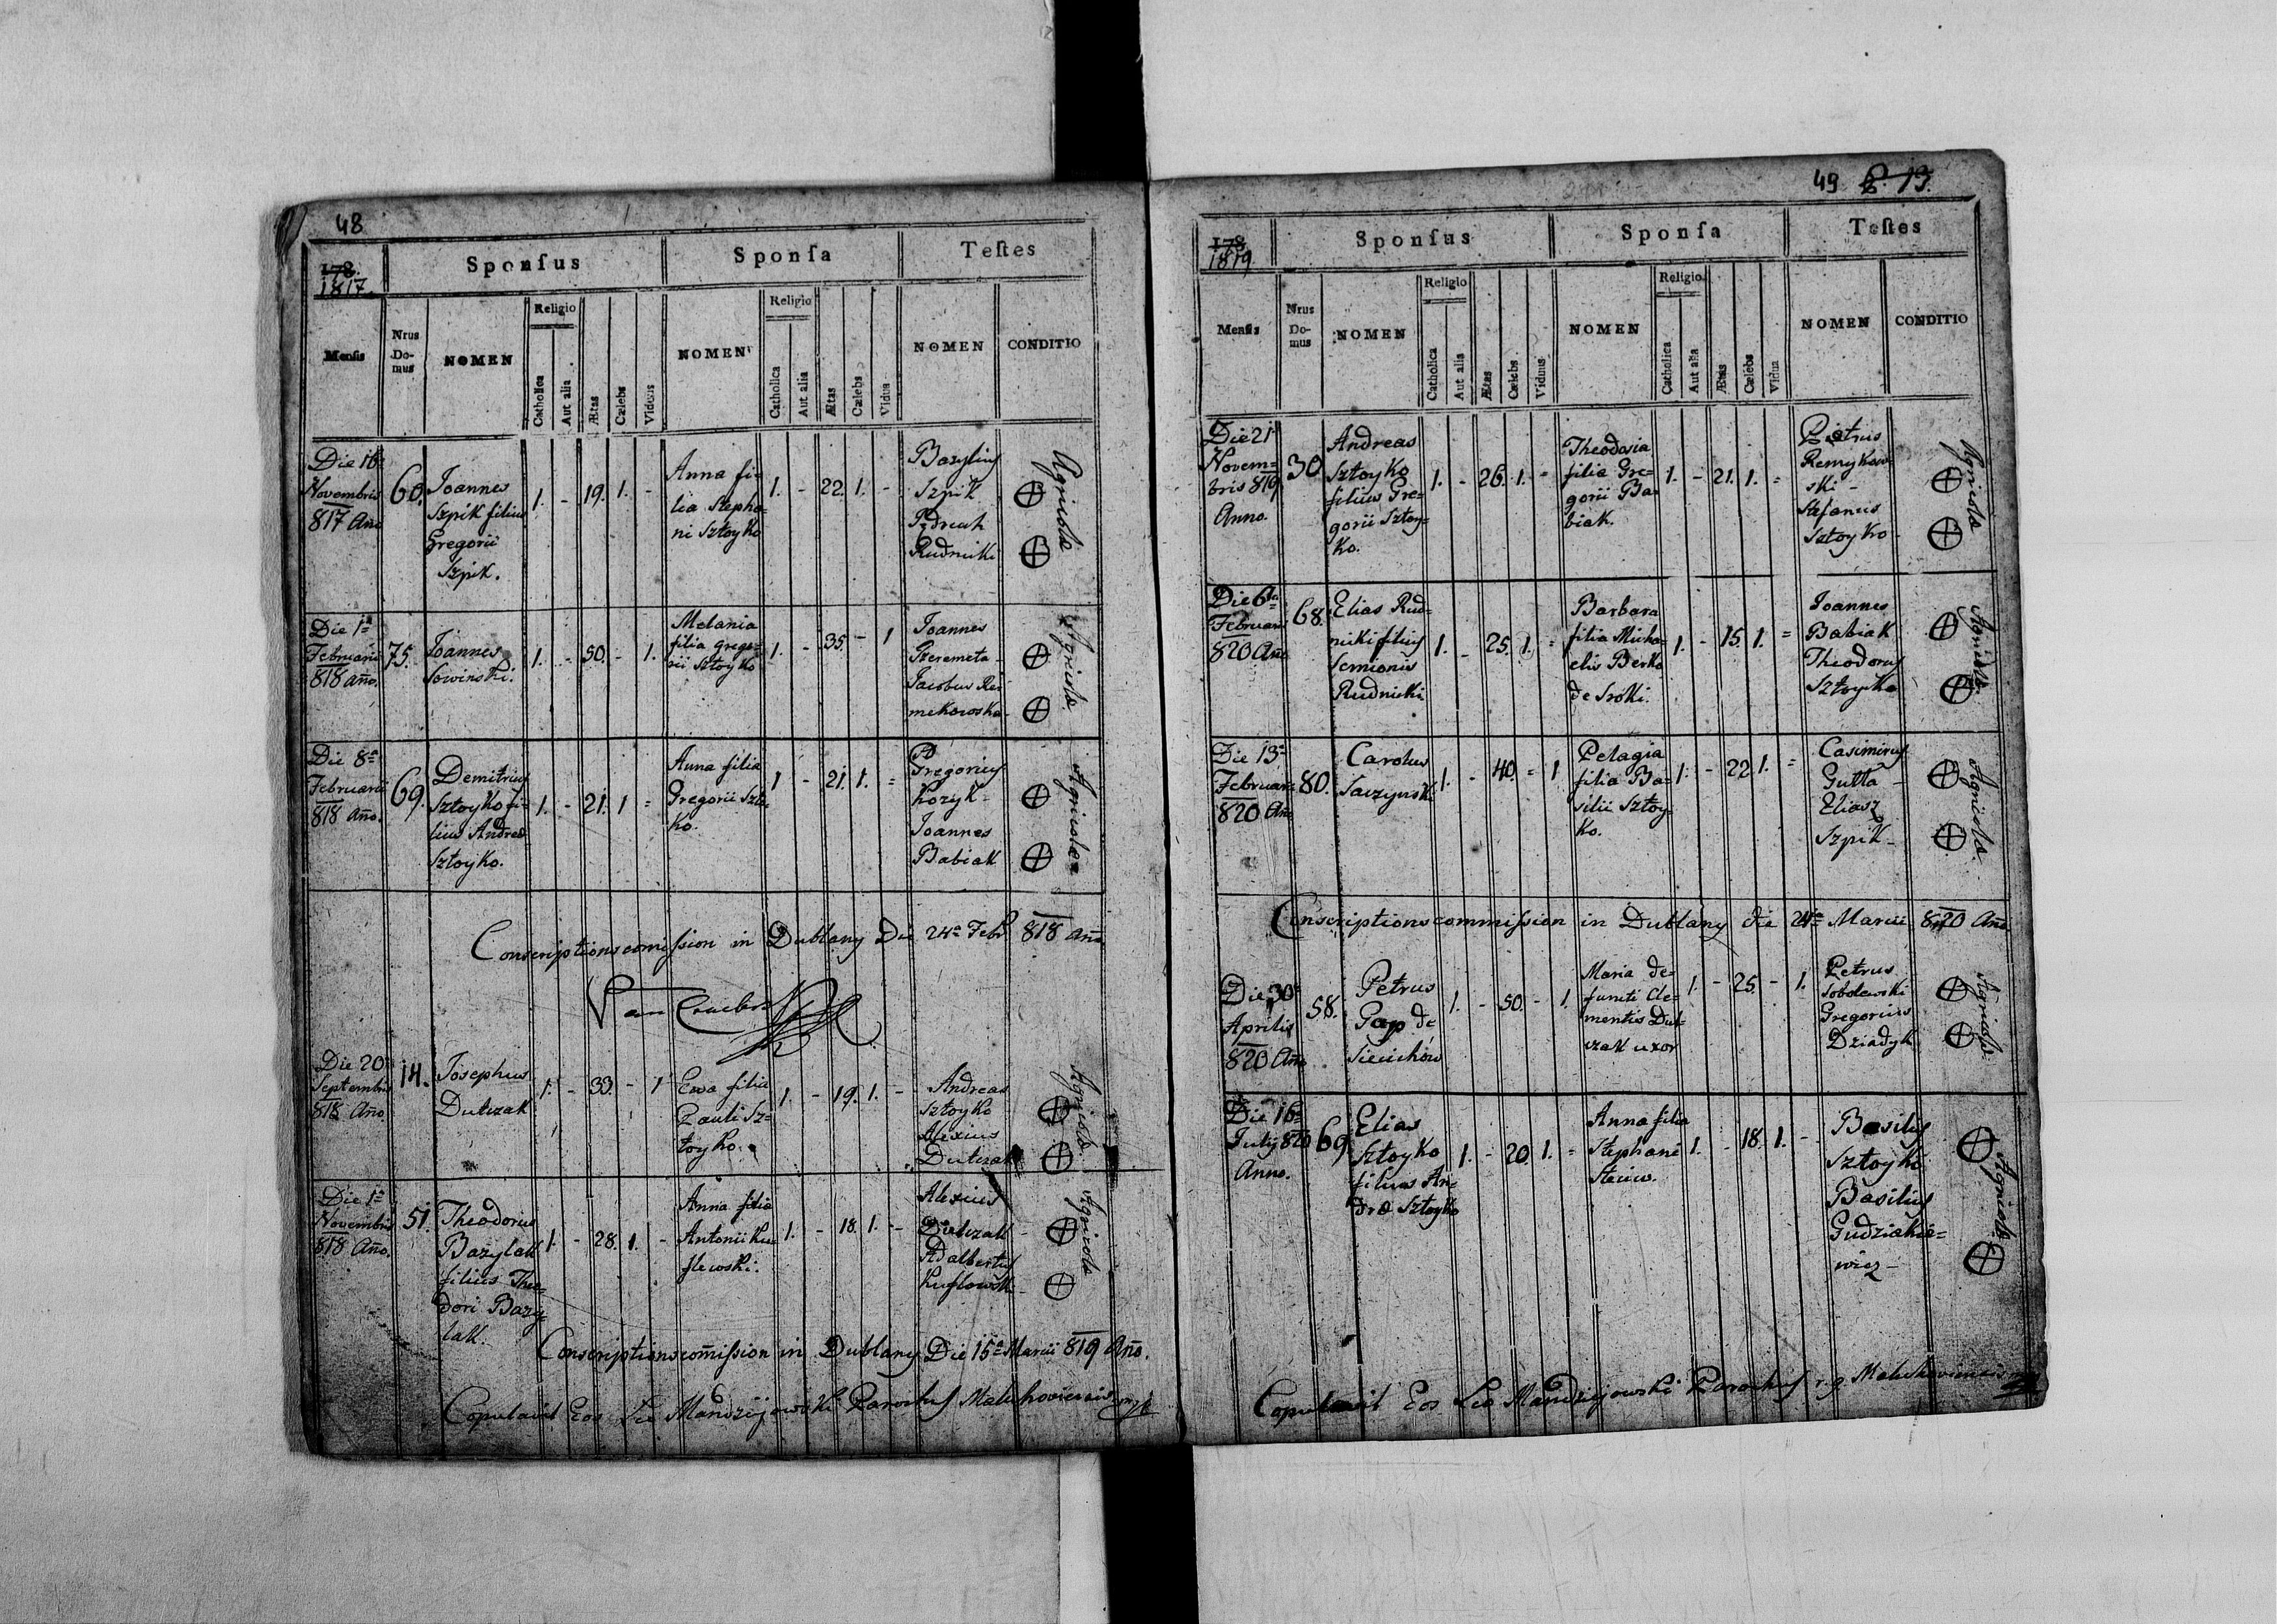 48
178.
1817.
Sponsus
Sponsa
Testes
Mensis
Nrus Do-mus
NOMEN
Religio
Catholica
Aut alia
Ætas
Cælebs
Viduus
NOMEN
Religio
Catholica
Aut alia
Ætas
Cælebs
Vidua
NOMEN
CONDITIO
Die 16
Novembris
817 Año
60.
Joannes
Szpik filius
Gregorii
Szpik.
1. - 19. 1. -
Anna fi-
lia Stepha-
ni Sztoyko
1. - 22. 1. -
Bazylius
Szpik
Rudnicki
Agricolæ
Die 1ª
Februarii
818 año.
75.
Joannes
Sowinski.
1. - 50. - 1.
Melania
filia Grego-
rii Sztoyko
1. - 35. - 1
Joannes
Szeremeta -
Jacobus Re-
mikowska -
Agricolæ.
Die 8ª
Februarii
818 Año.
69.
Demitrius
Sztoyko fi-
lius Andreæ
Sztoyko.
1. - 21. 1 =
Anna filia
Gregorii Szto-
ko.
1 - 21. 1. =
Gregorius
Kozyk -
Joannes
Babiak
Agricolæ
Conscriptionscomission in Dublany Die 24ª Febr 818 año
Die 20
Septembris
818 Año
14.
Josephus
Dutczak
1. - 33. - 1
Ewa filia
Pauli Sz-
toyko.
1. - 19. 1. -
Andreas
Sztoyko
Alexius
Dutczak
Agricolæ.
Die 1ª
Novembris
818 Año.
51.
Theodorus
Bazylak
filius Theo-
dori Bazy-
lak.
1. - 28. 1. -
Anna filia
Antonii Ku-
flewski.
1. - 18. 1. -
Alexius
Dutczak -
Adalbertus
Kuflowski
Agricolæ
Conscriptionscomission in Dublany Die 15ª Marcii 819 Año.
Copulavit Eos Leo Mandziejowski Parochus Maluchoviensis mp
49 13.
178
1819
Sponsus
Sponsa
Testes
Mensis
Nrus Do-mus
NOMEN
Religio
Catholica
Aut alia
Ætas
Cælebs
Viduus
NOMEN
Religio
Catholica
Aut alia
Ætas
Cælebs
Vidua
NOMEN
CONDITIO
Die 21
Novem=
bris 819
Anno.
30.
Andreas
Sztoyko
filius Gre-
gorii Sztoy=
ko.
1. - 26. 1. =
Theodosia
filia Gre-
gorii Ba-
biak.
1. - 21. 1. =
Pietrus
Remykow-
ski -
Stefanus
Sztoyko
Agricolæ
Die 6ta
Februarii
820 Año
68.
Elias Rud=
nicki filius
Semionis
Rudnicki
1. - 25. 1. =
Barbara
filia Micha-
elis Berko
de Sroki.
1. - 15. 1. =
Joannes
Babiak
Theodorus
Sztoyko
Agricolæ.
Die 13ª
Februarii
820 Año
80.
Carolus
Saczynski
1. - 40. = 1
Pelagia
filia Ba-
silii Sztoy-
ko.
1. - 22. 1. =
Casimirus
Gutta -
Eliasz
Szpik -
Agricolæ.
Conscriptionscommission in Dublany die 24ª Marcii 820 Año
Die 30ª
Aprilis
820 Año
58.
Petrus
Gap de
Sieciechów
1. - 50. - 1.
Maria de-
functi Cle-
mentis Dut-
czak uxor
1. - 25. - 1.
Petrus
Sobolewski
Gregorius
Dziadyk
Agricolæ.
Die 16ª
July 820
Anno.
69.
Elias
Sztoyko
filius An-
dræ Sztoyko
1. - 20. 1. =
Anna filia
Stephani
Steciw.
1. - 18. 1. -
Basilius
Sztoyko
Basilius
Gudziakie=
wicz -
Agricolæ.
Copulavit Eos Leo Mandziejowski Parochus r. g. Maluchoviensis